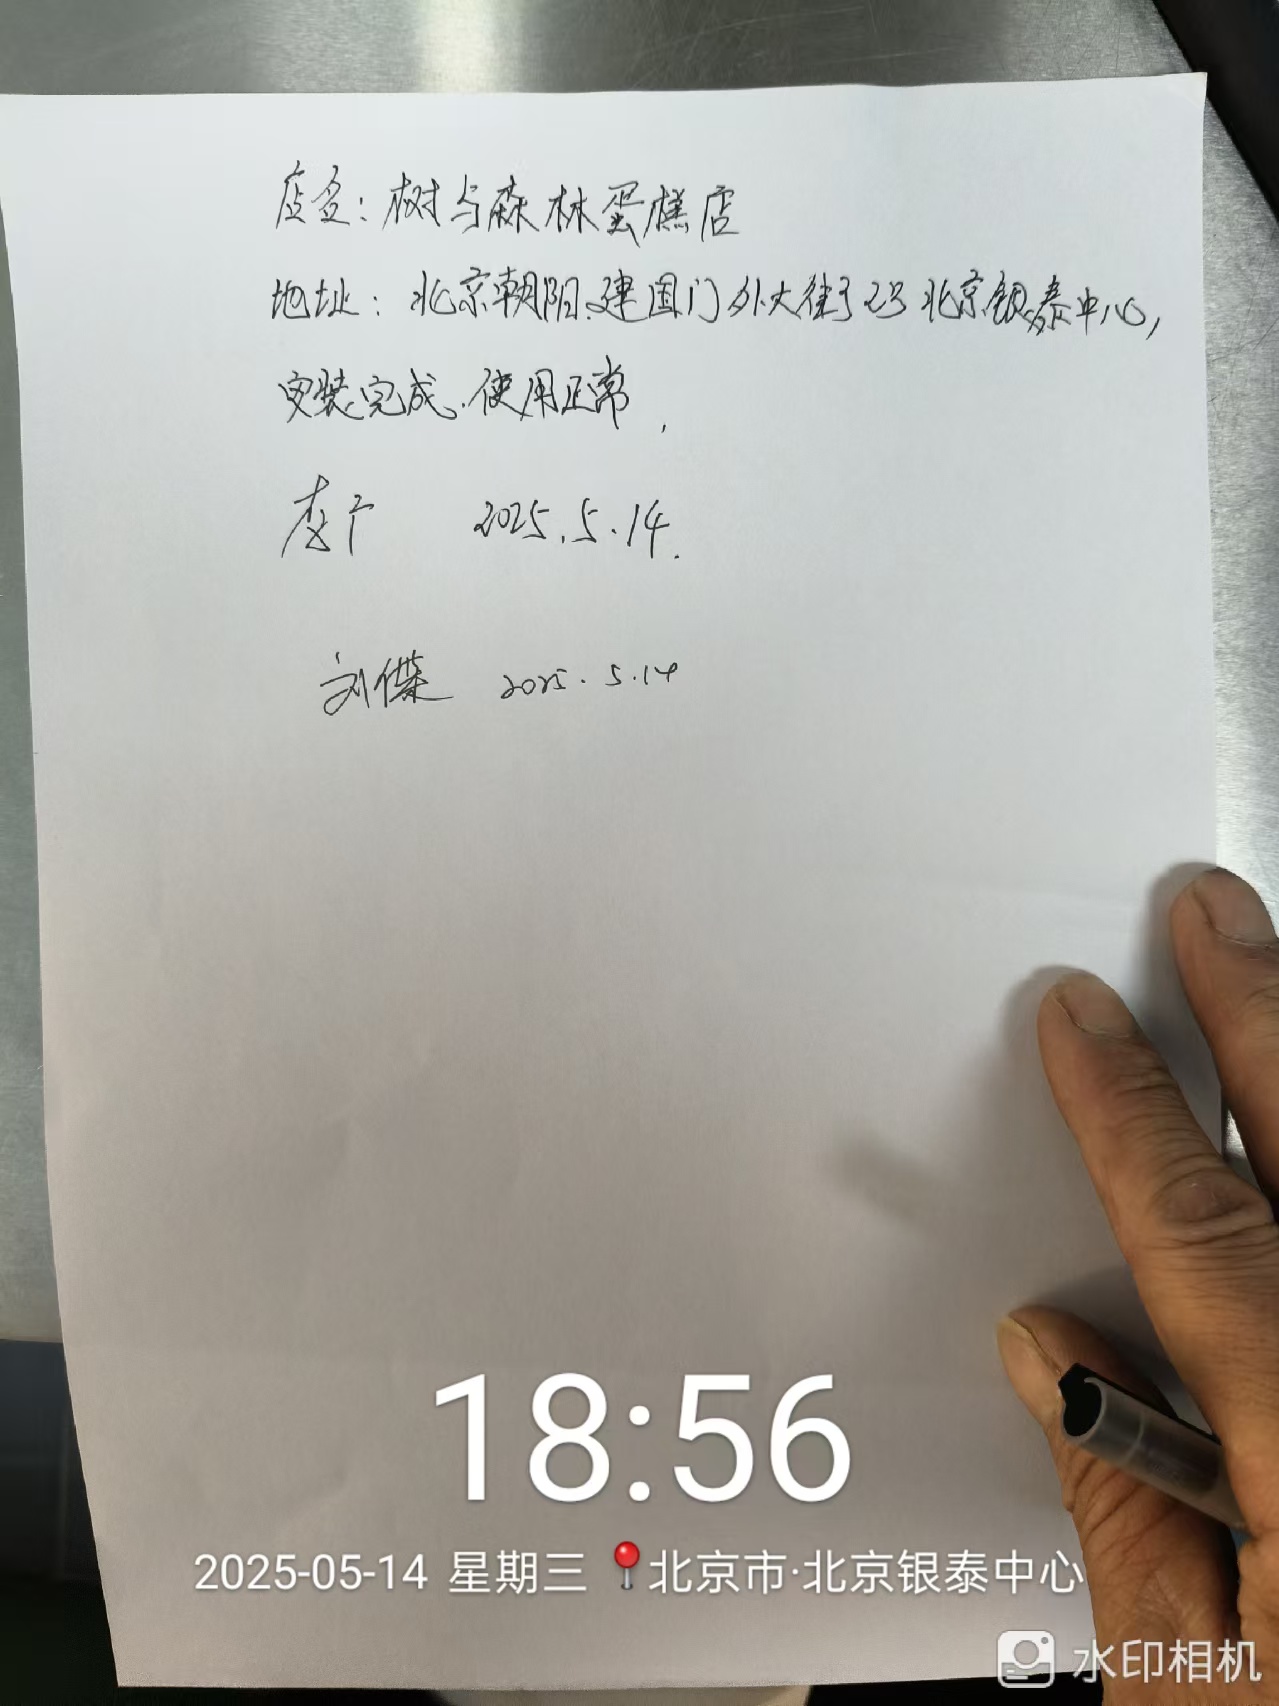 店名：树与森林蛋糕店
地址：北京朝阳.建国门外大街2号北京银泰中心,
安装完成.使用正常,
2025.5.14.
刘傑 2025.5.14
18:56
2025-05-14 星期三 北京市·北京银泰中心
水印相机